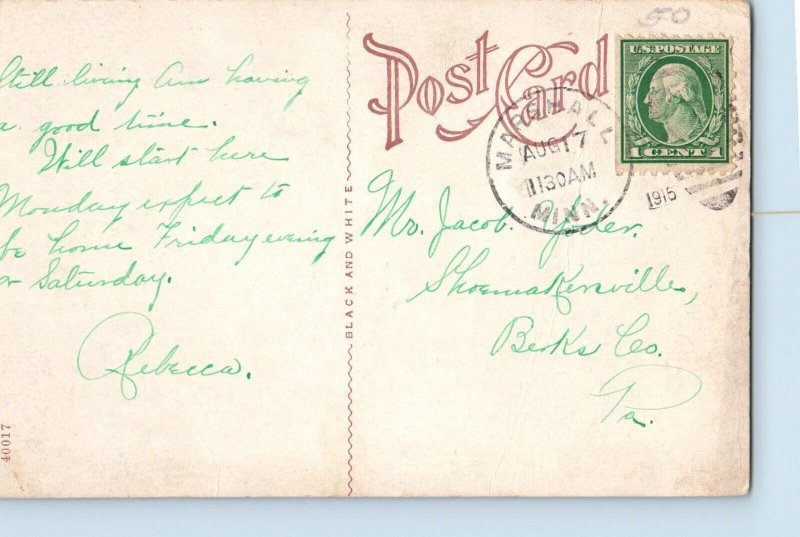 Still living Am having
a good time.
Will start here
Monday expect to
be home Friday evening
or Saturday.
Rebecca.
40017
BLACK AND WHITE
Post Card
50
U.S. POSTAGE
1 CENT 1
MARSHALL
AUG 17
1130AM
MINN.
1915
Mr. Jacob Yoder.
Shoemakersville,
Berks Co.
Pa.